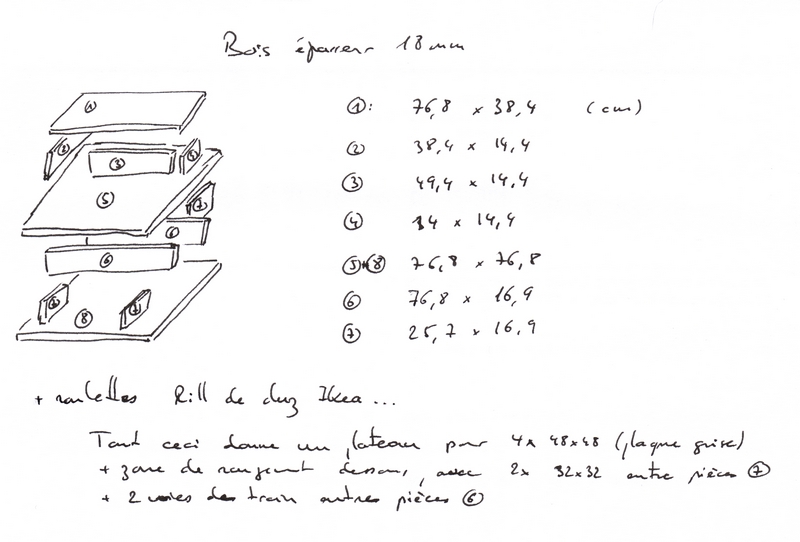 Bois épaisseur 18 mm
①: 76,8 x 38,4 (cm)
② 38,4 x 14,4
③ 49,4 x 14,4
④ 34 x 14,4
⑤+⑧ 76,8 x 76,8
⑥ 76,8 x 16,9
⑦ 25,7 x 16,9
①
②
③
④
⑤
⑦
⑥
⑥
⑦
⑦
⑧
+ roulettes Rill de chez Ikea...
Tout ceci donne un plateau pour 4x 48x48 (plaque grise)
+ zone de rangement dessous, avec 2x 32x32 entre pièces ⑦
+ 2 voies de train entres pièces ⑥